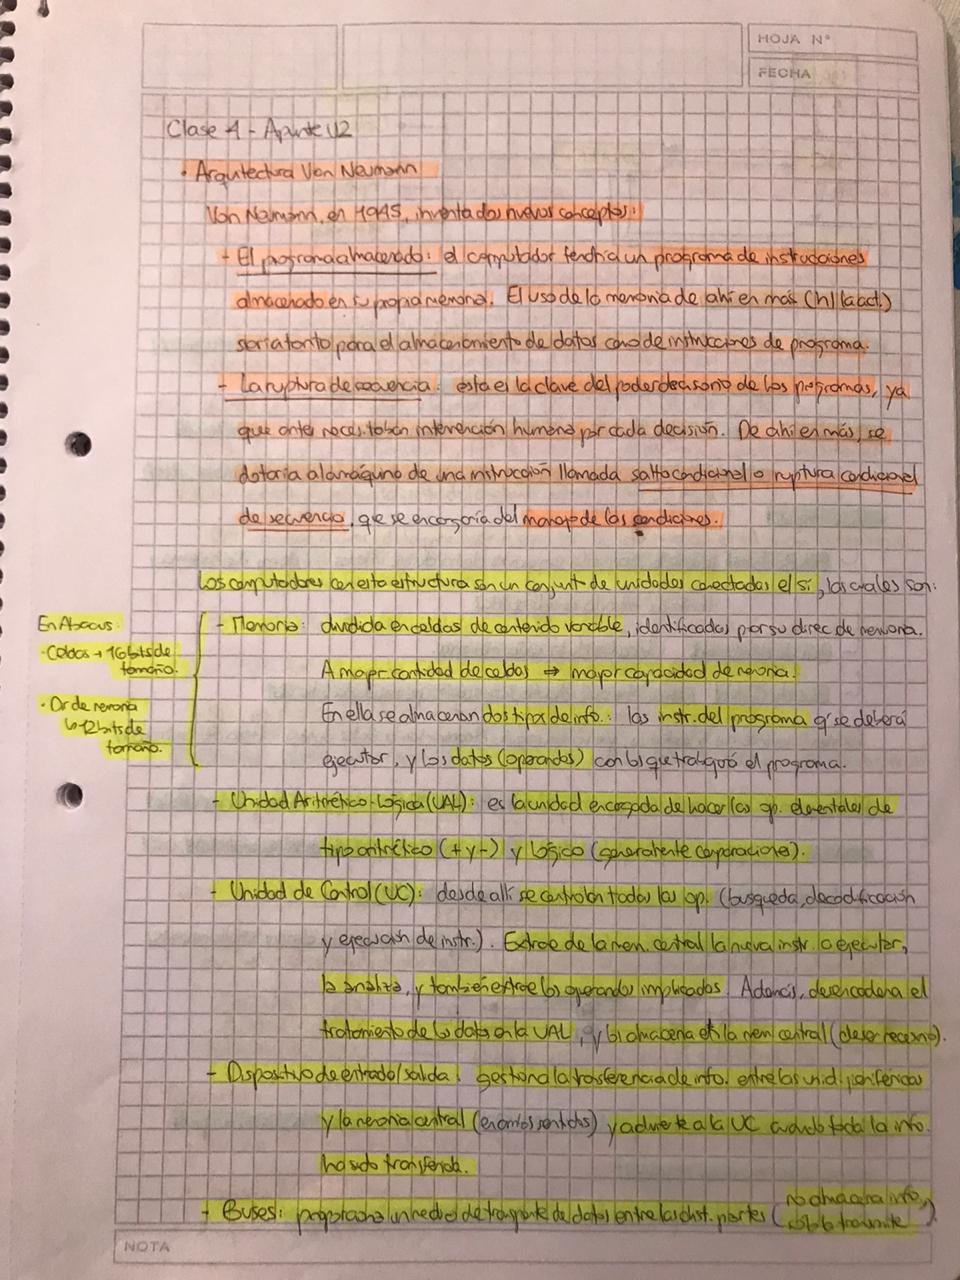 HOJA N°
FECHA
Clase 4 - Apunte U2
• Arquitectura Von Neumann
Von Neumann, en 1945, inventa dos nuevos conceptos:
- El programa almacenado: el computador tendría un programa de instrucciones
almacenado en su propia memoria. El uso de la memoria de ahí en más (h/ la act.)
sería tanto para el almacenamiento de datos como de instrucciones de programa.
- La ruptura de secuencia: esta es la clave del poder decisorio de los programas, ya
que antes necesitaban intervención humana por cada decisión. De ahí en más, se
dotaría a la máquina de una instrucción llamada salto condicional o ruptura condicional
de secuencia, que se encargaría del manejo de las condiciones.
Los computadores con esta estructura son un conjunt de unidades conectadas e/ sí, las cuales son:
En Abacus:
• Celdas → 16 bits de
tamaño.
• Dir de memoria
↳ 12 bits de
tamaño.
- Memoria: dividida en celdas de contenido variable, identificadas por su direc de memoria.
A mayor cantidad de celdas ⇒ mayor capacidad de memoria.
En ella se almacenan dos tipos de info.: las instr. del programa q' se deberá
ejecutar, y los datos (operandos) con los que trabajará el programa.
- Unidad Aritmético-Lógica (UAL): es la unidad encargada de hacer las op. elementales de
tipo aritmético (+ y -) y lógico (generalmente comparaciones).
- Unidad de Control (UC): desde allí se controlan todas las op. (busqueda, decodificación
y ejecución de instr.). Extrae de la mem. central la nueva instr. a ejecutar,
la analiza, y también extrae los operandos implicados. Además, desencadena el
tratamiento de los datos en la UAL, y los almacena en la mem central (de ser necesario).
- Dispositivo de entrada/salida: gestiona la transferencia de info. entre las unid. periféricas
y la memoria central (en ambos sentidos) y advierte a la UC cuando toda la info.
ha sido transferida.
- Buses: proporciona un medio de transporte de datos entre las dist. partes (no almacena info,
sólo la transmite).
NOTA